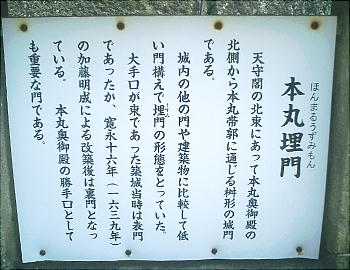 ほんまるうずみもん
本丸埋門
天守閣の北東にあって本丸奥御殿の
北側から本丸帯郭に通じる枡形の城門
である。
城内の他の門や建築物に比較して低
い門構えで埋門の形態をとっていた。
大手口が東であった築城当時は表門
であったが、寛永十六年(一六三九年)
の加藤明成による改築後は裏門となっ
ている。 本丸奥御殿の勝手口として
も重要な門である。